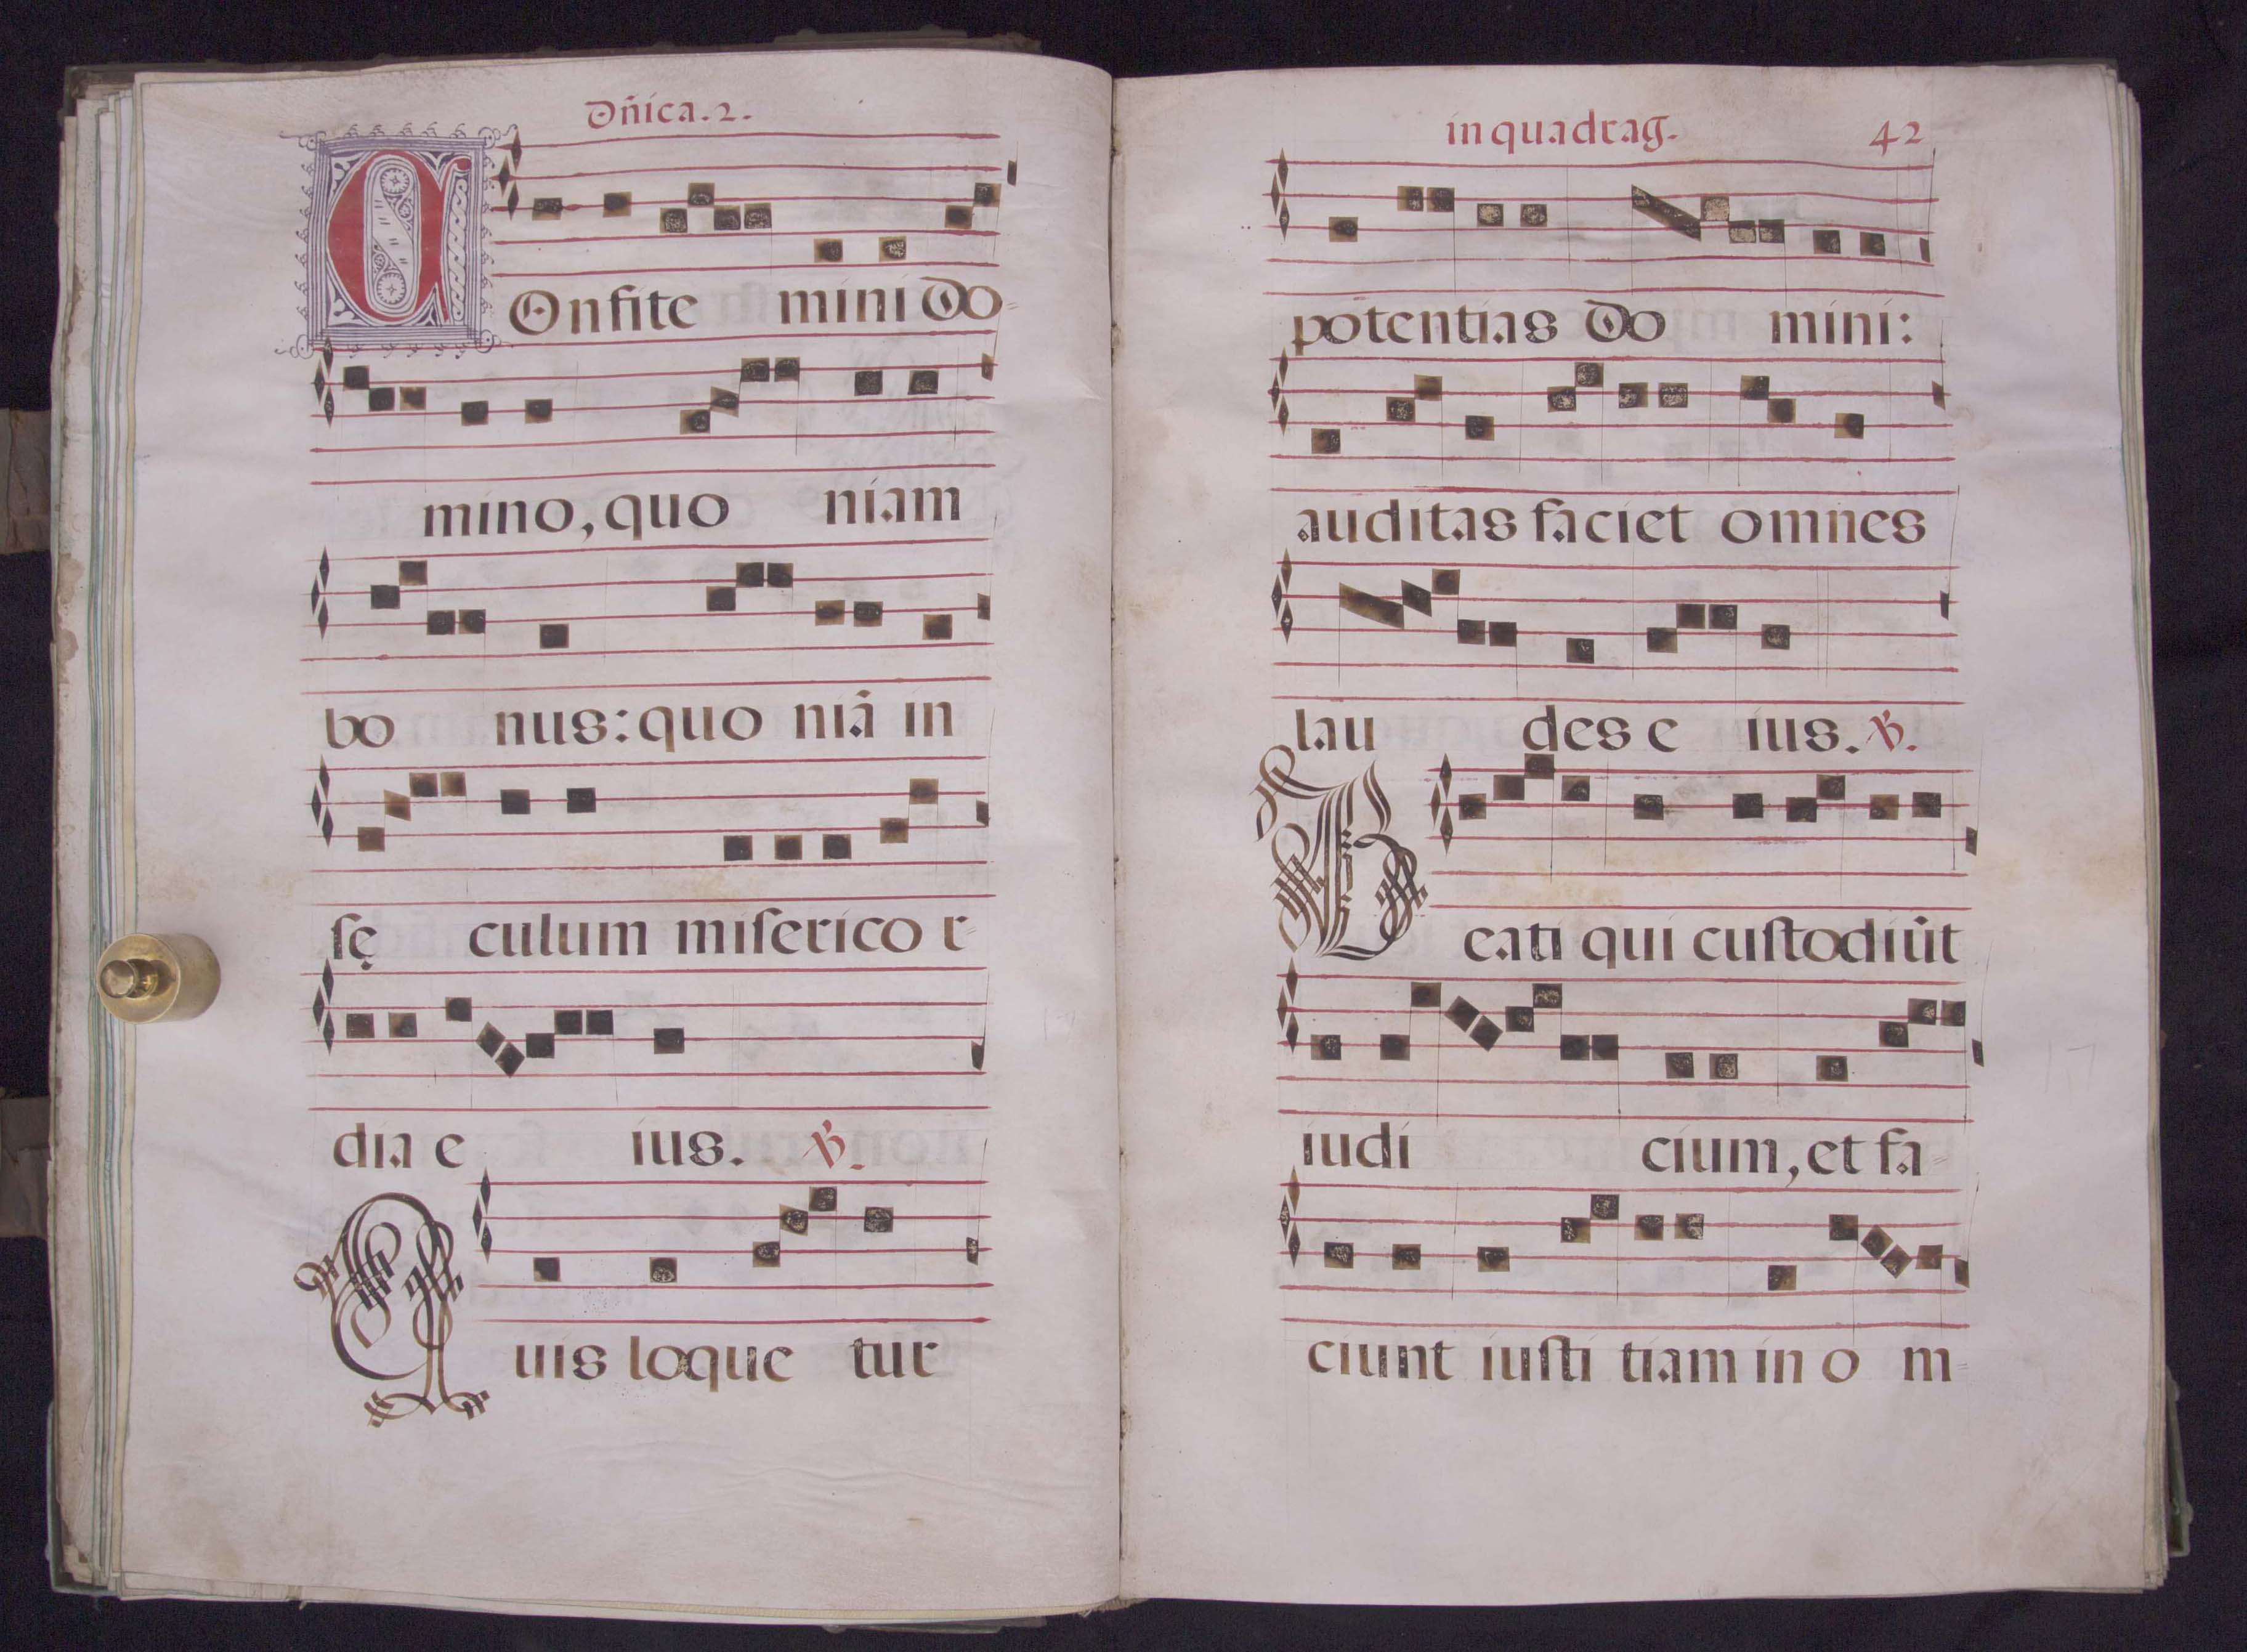 Dn̄ica.2.
COnfite mini Do-
mino, quo niam
bo nus: quo niā in
ſę culum miſerico r-
dia e ius. ℣.
Quis loque tur
in quadrag. 42
potentias Do mini:
auditas faciet omnes
lau des e ius. ℣.
Beati qui cuſtodiūt
iudi cium, et fa-
ciunt iuſti tiam in o m-